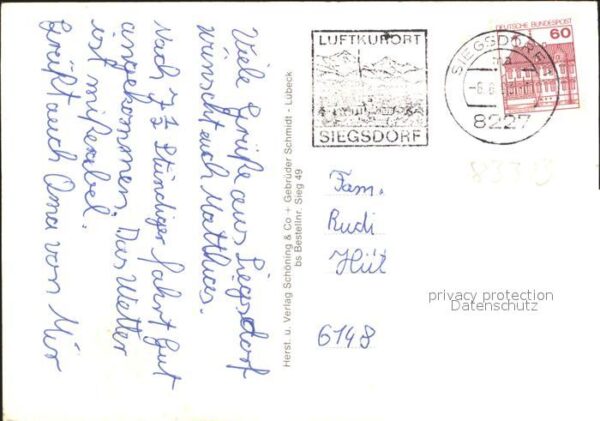 Viele Grüße aus Siegsdorf
wünscht euch Matthias.
Nach 7 ½ Stündiger fahrt gut
angekommen. Das Wetter
ist mißerabel.
Grüßt auch Oma von Mir
Herst. u. Verlag Schöning & Co + Gebrüder Schmidt - Lübeck
bs Bestellnr. Sieg 49
LUFTKURORT
SIEGSDORF
SIEGSDORF
8227
DEUTSCHE BUNDESPOST
60
Fam.
Rudi
Hüt
6148
privacy protection
Datenschutz